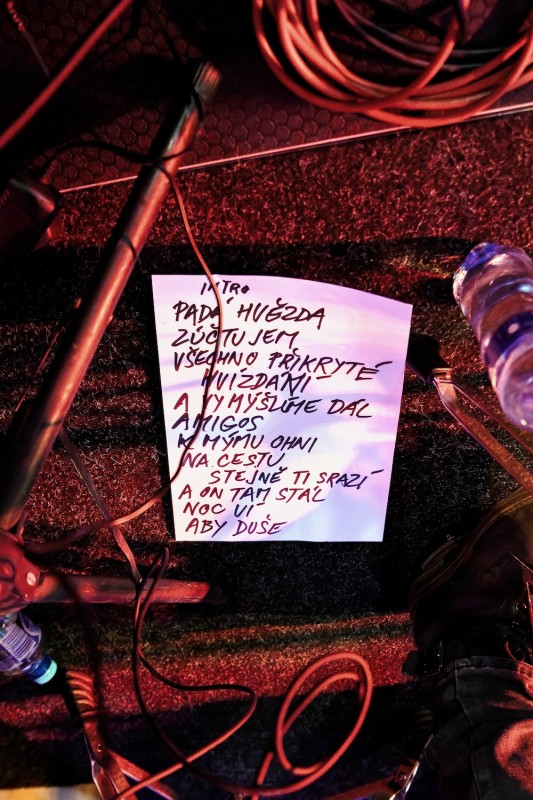 INTRO
PADÁ HVĚZDA
ZÚČTUJEM
VŠECHNO PŘIKRYTÉ
HVÍZDÁNÍ
A VYMÝŠLÍME DÁL
AMIGOS
K MÝMU OHNI
NA CESTU
STEJNĚ TI SRAZÍ
A ON TAM STÁL
NOC VÍ
ABY DUŠE